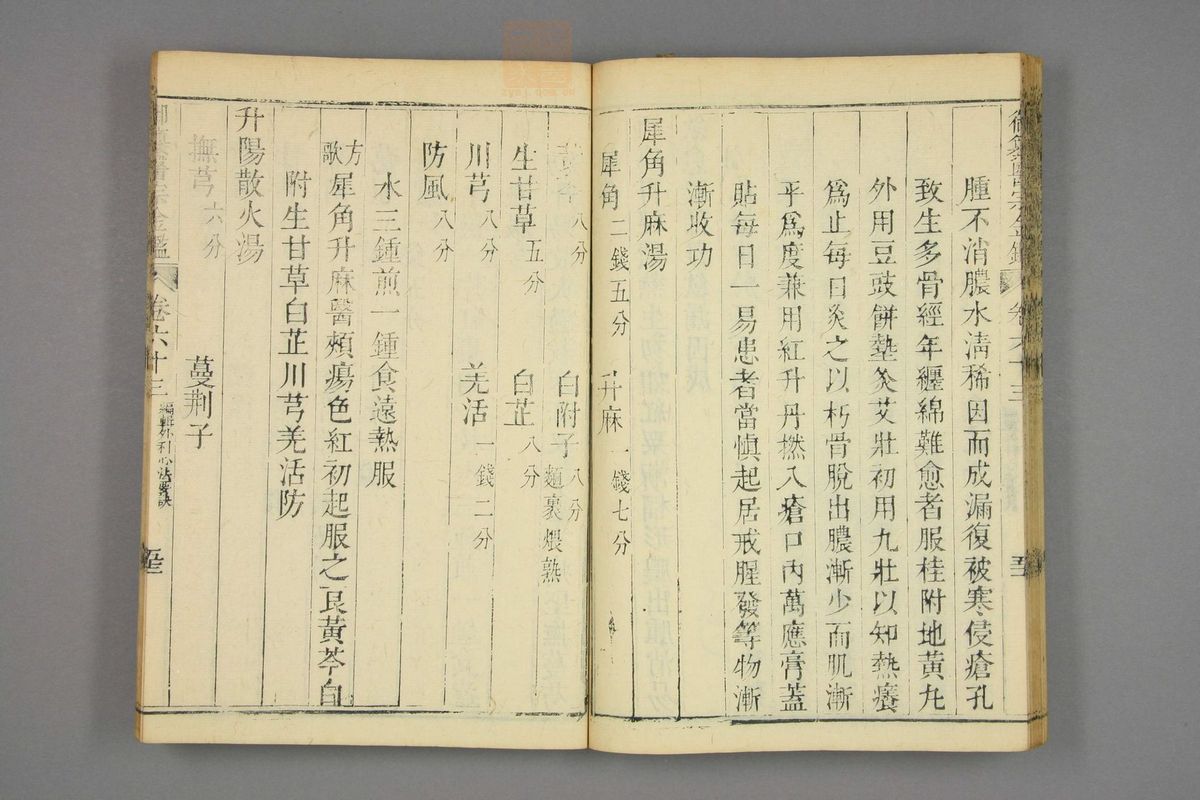 腫不消膿水清稀因而成漏復被寒侵瘡孔
致生多骨經年纏綿難愈者服桂附地黃丸
外用豆豉餅墊灸艾壯初用九壯以知熱癢
爲止每日灸之以朽骨脫出膿漸少而肌漸
平爲度兼用紅升丹撚入瘡口內萬應膏蓋
貼每日一易患者當愼起居戒腥發等物漸
漸收功
犀角升麻湯
犀角二錢五分 升麻一錢七分
黃芩八分 白附子八分麵裹煨熟
生甘草五分 白芷八分
川芎八分 羌活一錢二分
防風八分
水三鍾煎一鍾食遠熱服
方歌犀角升麻醫頰瘍色紅初起服之良黃芩白
附生甘草白芷川芎羌活防
升陽散火湯
撫芎六分 蔓荆子
金鑑 卷六十三 編輯外科心法要訣